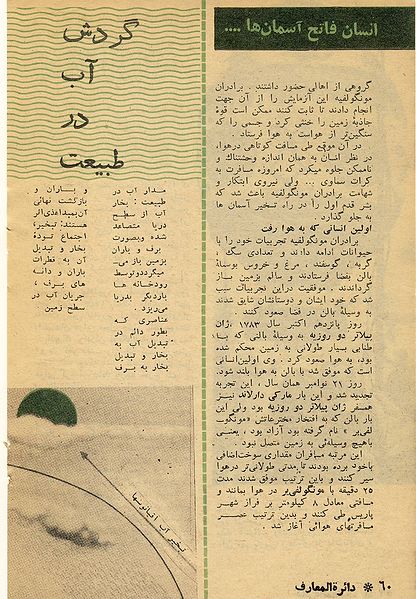 انسان فاتح آسمان‌ها ....
گروهی از اهالی حضور داشتند . برادران
مونگولفیه این آزمایش را از آن جهت
انجام دادند تا ثابت کنند ممکن است قوهٔ
جاذبهٔ زمین را خنثی کرد و جسمی را که
سنگین‌تر از هواست به هوا فرستاد .
در آن موقع طی مسافت کوتاهی درهوا،
در نظر انسان به همان اندازه وحشتناك و
ناممکن جلوه میکرد که امروزه مسافرت به
کرات سماوی ... ولی نیروی ابتکار و
شهامت برادران مونگولفیه باعث شد که
بشر قدم اول را در راه تسخیر آسمان ها
به جلو گذارد .
اولین انسانی که به هوا رفت
برادران مونگولفیه تجربیات خود را با
حیوانات ادامه دادند و تعدادی سگ ،
گربه ، گوسفند ، مرغ و خروس بوسیلهٔ
بالن بفضا فرستادند و سالم بزمین باز
گرداندند . موفقیت دراین تجربیات سبب
شد که خود ایشان و دوستانشان شایق شدند
به وسیلهٔ بالن در فضا صعود کنند .
روز پانزدهم اکتبر سال ۱۷۸۳، ژان
پیلاتر دو روزیه به وسیلهٔ بالنی که با
طنابی بسیار طولانی به زمین محکم شده
بود، به هوا صعود کرد . وی اولین‌انسانی
است که موفق شد با بالن به هوا بلند شود.
روز ۲۱ نوامبر همان سال ، این تجربه
تجدید شد و این بار مارکی دارلاند نیز
همسفر ژان پیلاتر دو روزیه بود ولی این
بار بالن که به افتخار مخترعانش «مونگو-
لفی‌یر » نام گرفته بود آزاد بود ، یعنی
باهیچ وسیله‌ئی به زمین متصل نبود .
این مرتبه مسافران مقداری سوخت‌اضافی
باخود برده بودند تا مدتی طولانی‌تر درهوا
سیر کنند و باین ترتیب موفق شدند مدت
۲۵ دقیقه با مونگولفی‌یر در هوا بمانند و
مسافتی معادل ۸ کیلومتر بر فراز شهر
پاریس طی کنند و بدین ترتیب عصر
مسافرتهای هوائی آغاز شد .
گردش
آب
در
طبیعت
مدار آب در
طبیعت : بخار
آب از سطح
دریا متصاعد
شده وبصورت
برف و باران
بزمین باز می-
میگرددوتوسط
رودخانه ها
بازدیگر بدریا
می‌ریزد .
عناصری که
بطور دائم در
تبدیل آب به
بخار و تبدیل
بخار به برف
و باران و
بازگشت نهائی
آن‌بمبداءذی‌اثر
هستند: تبخیر،
اجتماع تودهٔ
بخار و تبدیل
آن به قطرات
باران و دانه
های برف ،
جریان آب در
سطح زمین
تبخیر آب اقیانوسها
۶۰ * دائرةالمعارف